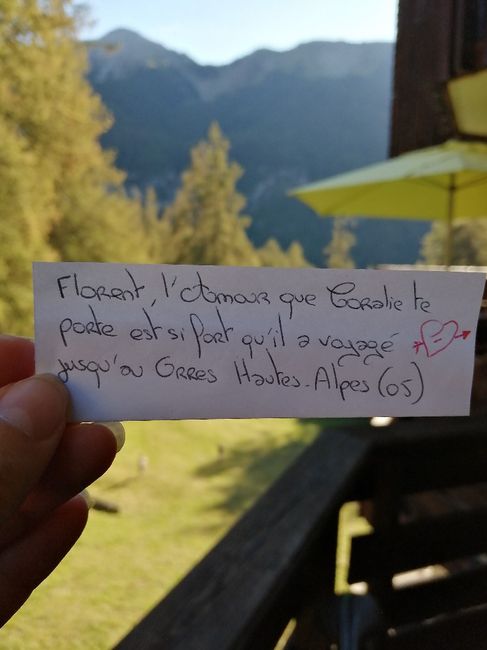 Florent, l'Amour que Coralie te
porte est si fort qu'il a voyagé
jusqu'au Orres Hautes-Alpes (05)